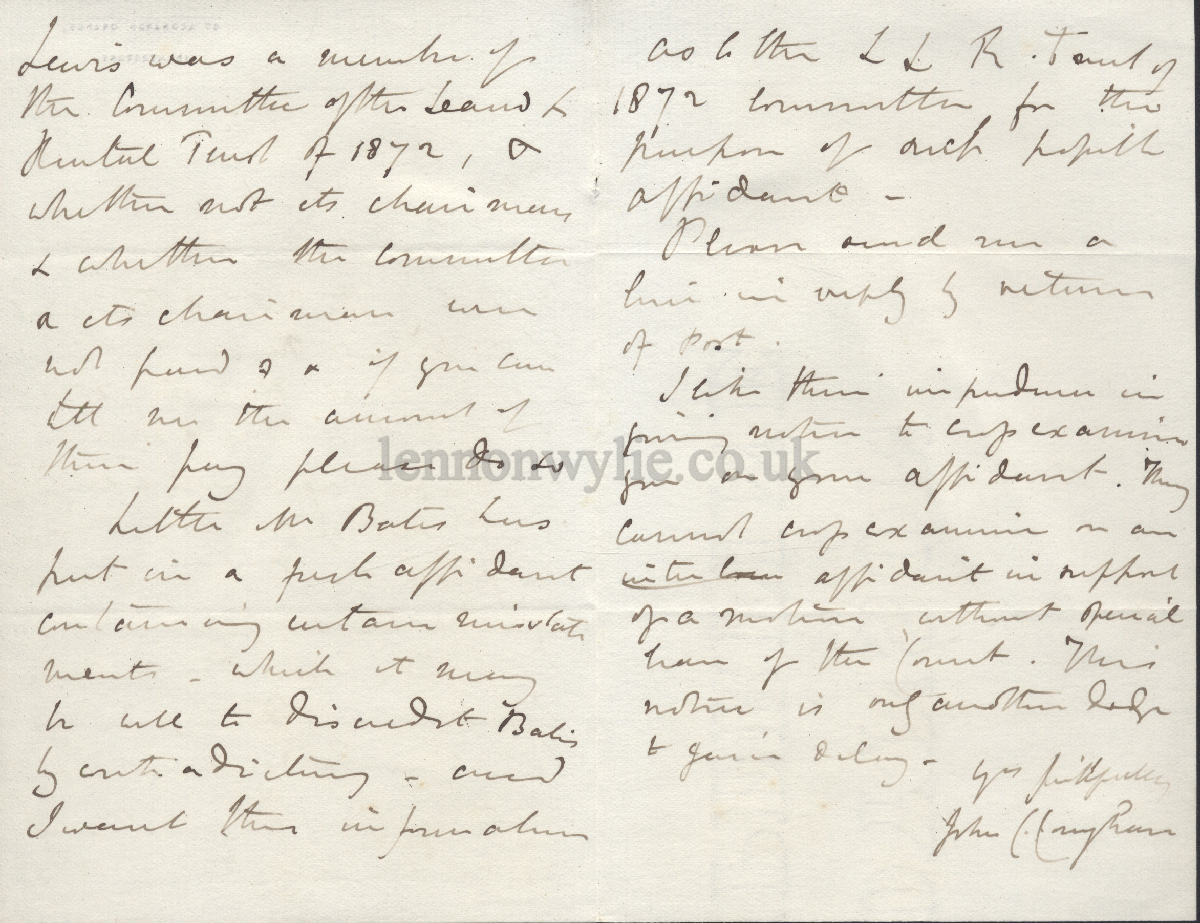 Lewis was a member of
the Committee of the Land &
Rental Trust of 1872, &
whether not its chairman
& whether the Committee
or its chairman were
not paid & if you can
tell me the amount of
their pay please do so
Little Mr Bates has
put in a fresh affidavit
containing certain misstate
ments - which it may
be well to discredit Bates
by contradicting - and
I want this information
as to the L L R. Trust of
1872 Committee for the
purpose of such
affidavit -
Please send me a
line in reply by return
of Post.
I like their impudence in
giving notice to cross examine
you on your affidavit. They
cannot cross examine on an
affidavit in support
of a motion without special
leave of the Court. This
notice is only another dodge
to gain delay -
yrs faithfully
John
lennonwylie.co.uk